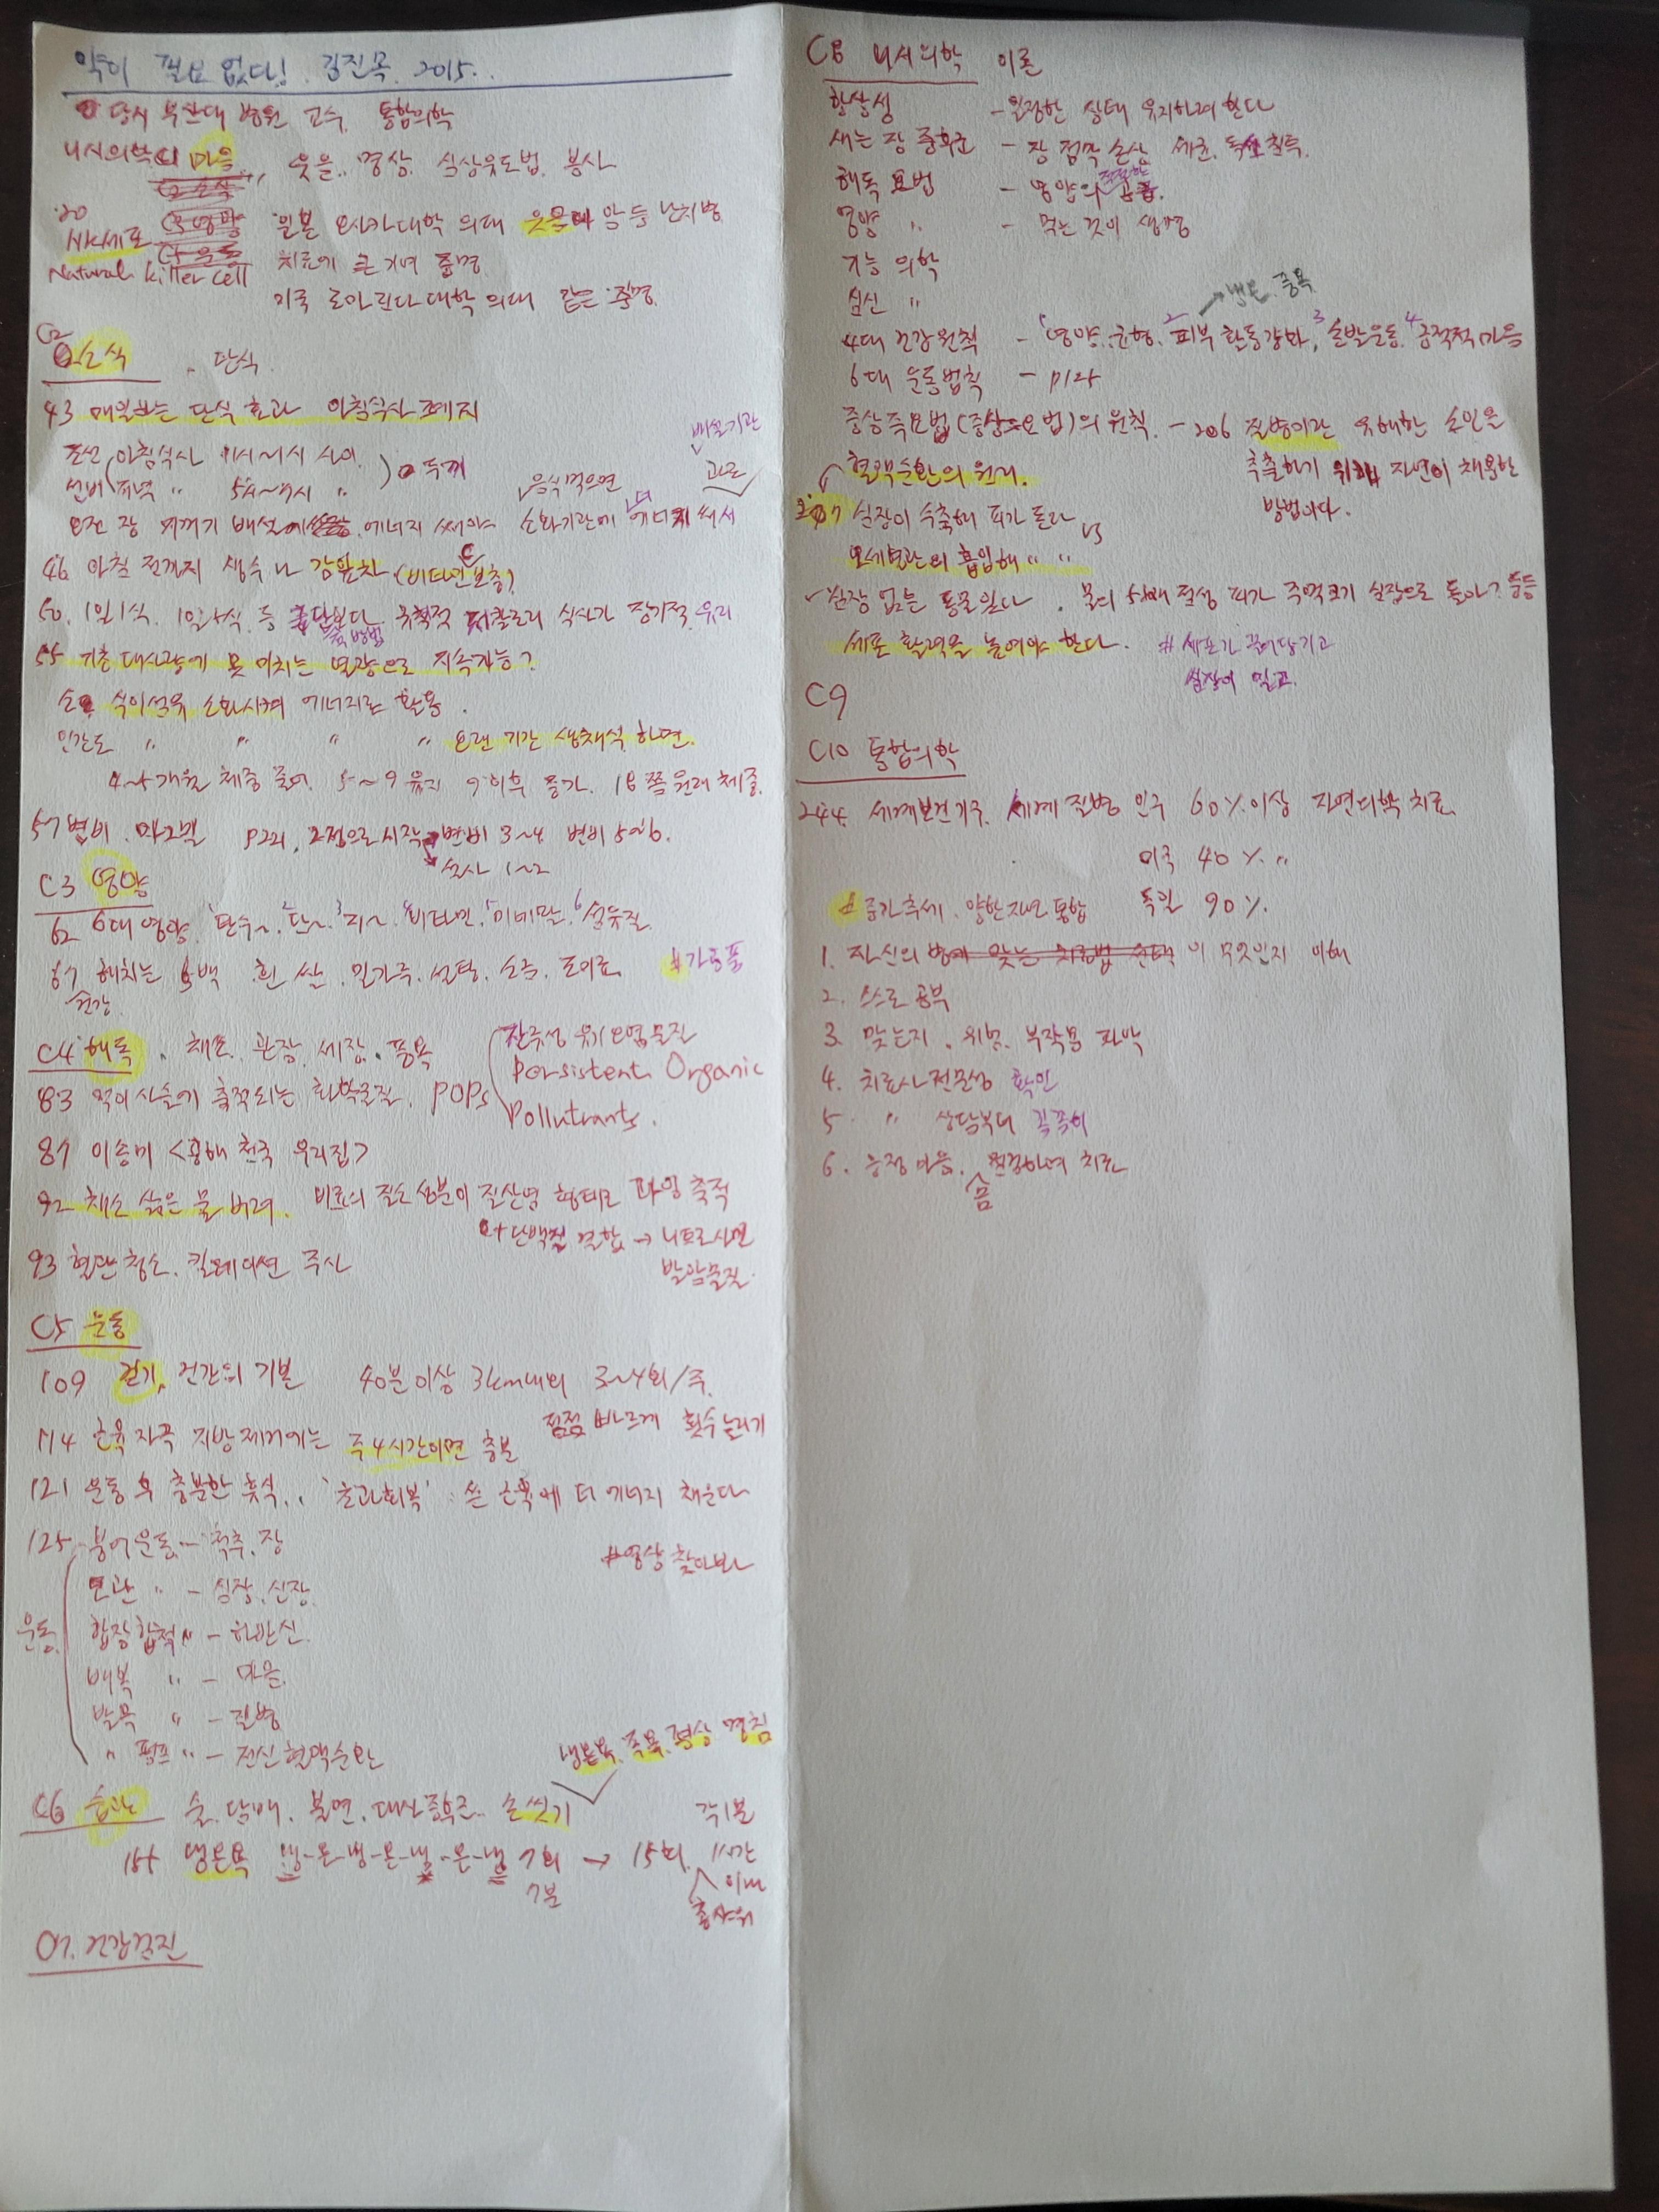 약이 필요 없다! 김진목. 2015..
당시 부산대 병원 교수, 통합의학
니시의학 C1 마음.., 웃음, 명상, 심상유도법, 봉사
C2 소식
'20 C3 영양 일본 오사카대학 의대 웃음이 암 등 난치병
NK세포 C4 운동 치료에 큰 기여 증명
Natural killer cell
미국 로마린다대학 의대 같은 증명.
C2
소식 . 단식.
43 매일하는 단식 효과 아침식사 폐지
조선 아침식사 11시~1시 사이.
선비 저녁 〃 5시~7시 〃 ) 두끼
배설기관
과로
음식먹으면
오전 장 찌꺼기 배설에 에너지 써야 소화기관에 더 에너지 써서
46 아침 전까지 생수나 감잎차 (비타민C 보충)
50. 1일1식, 1일2식 등 보다 규칙적 저칼로리 식사가 장기적 유리
방법
55 기초대사량에 못 미치는 열량으로 지속가능?
소 식이섬유 소화시켜 에너지로 활용.
인간도 〃 〃 〃 〃 오랜 기간 생채식 하면.
4~5개월 체중 줄어. 5~9 유지 9이후 증가. 18쯤 원래 체중.
57 변비. 마그밀 P221, 2정으로 시작 변비 3~4 변비 5~6.
설사 1~2
C3 영양
62 6대 영양 1탄수~. 2단~. 3지~. 4비타민. 5미네랄. 6섬유질
67 해치는 5백 흰 쌀. 밀가루. 설탕. 소금. 조미료 #가동품
건강
C4 해독. 채소. 관장. 세장. 풍욕
잔류성 유기오염물질
Persistent Organic
Pollutants.
83 먹이사슬에 축적되는 화학물질. POPs
87 이송미 <공해 천국 우리집>
92 채소 삶은 물 버려. 비료의 질소성분이 질산염 형태로 과잉 축적
+단백질 결합 → 니트로사민
발암물질.
93 혈관청소. 킬레이션 주사
C5 운동
109 걷기, 건강의 기본 40분이상 3km내외 3~4회/주.
점점 빠르게 횟수늘리기
114 근육 자극 지방제거에는 주4시간이면 충분
121 운동 후 충분한 휴식.. '초과회복' 쓴 근육에 더 에너지 채운다
125 붕어운동 - 척추, 장
#영상 찾아보자
모관 〃 - 심장, 신장.
운동 합장합척 〃 - 하반신.
배복 〃 - 마음.
발목 〃 - 질병
〃 펌프 〃 - 전신혈액순환
냉온욕, 족욕, 평상 경침
C6 습관 술, 담배, 불면, 대사증후군, 손씻기
각1분
155 냉온욕 냉-온-냉-온-냉-온-냉 7회 → 15회. 1시간
7분 이내
총샤워
C7. 건강검진
C8 니시의학 이론
항상성 - 일정한 상태 유지하려 한다
새는 장 증후군 - 장 점막 손상 세균, 독소 침투.
해독 요법 - 영양의 적절한 공급.
영양 〃 - 먹는 것이 생명
기능 의학
심신 〃
→냉온. 풍욕
4대 건강원칙 - 1영양.균형. 2피부 활동강화, 3손발운동 4긍정적 마음
6대 운동법칙 - P125
증상즉요법(증상=요법)의 원칙. - 206 질병이란 유해한 요인을
추출하기 위해 자연이 채용한
방법이다.
혈액순환의 원리.
207 심장이 수축해 피가 돈다
vs
모세혈관의 흡입해 〃 〃
심장 없는 동물있다. 물의 5배 점성 피가 주먹크기 심장으로 돌아? 등등
세포 활력을 높여야 한다. #세포가 끌어당기고
심장이 밀고.
C9
C10 통합의학
244. 세계보건기구. 세계 질병 인구 60%이상 자연의학 치료.
미국 40% 〃
# 증가추세. 양한자연 통합 독일 90%.
1. 자신의 병에 맞는 치료법 선택이 무엇인지 이해
2. 스스로 공부
3. 맞는지. 위험. 부작용 파악
4. 치료사 전문성 확인
5. 〃 상담부터 꼼꼼히
6. 긍정마음, 점검하며 치료
몸